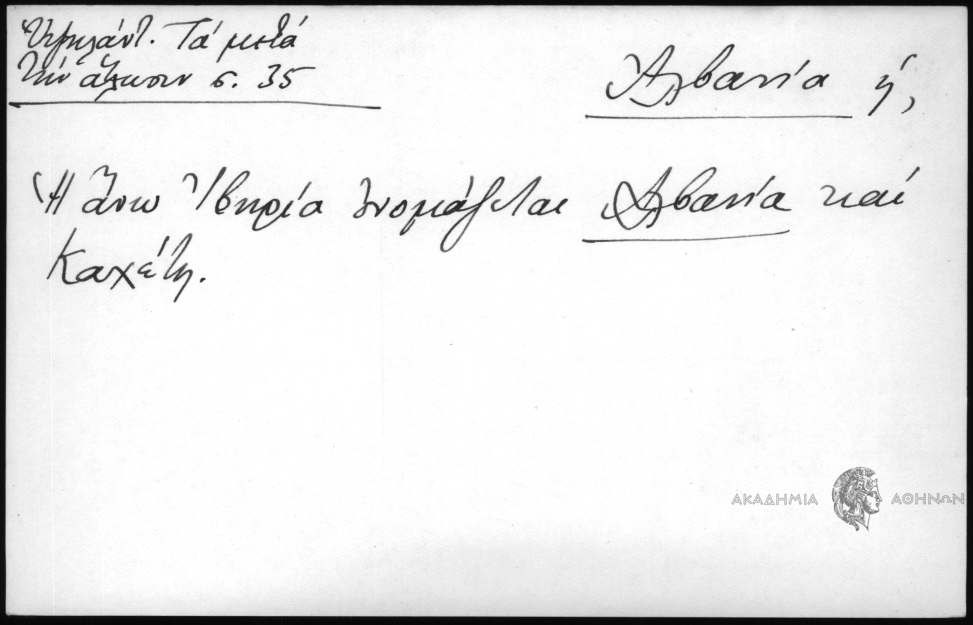 Ὑψηλάντ. Τά μετά
τήν ἅλωσιν σ. 35
Ἀλβανία ἡ,
Ἡ ἄνω Ἰβηρία ὀνομάζεται Ἀλβανία καί
Καχέτη.
ΑΚΑΔΗΜΙΑ ΑΘΗΝΩΝ